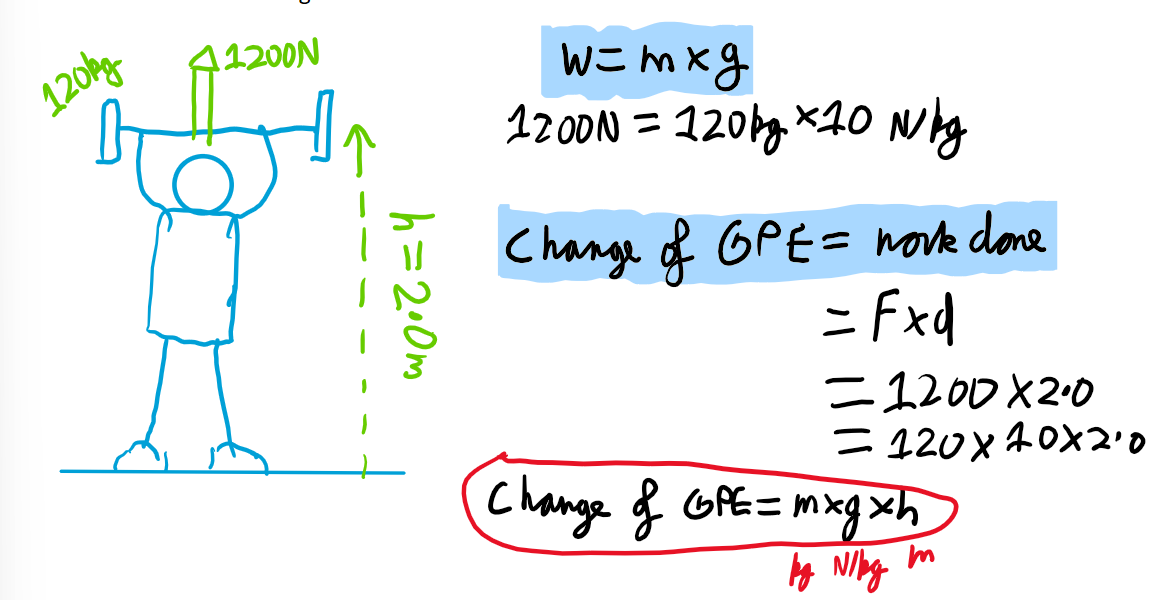 120kg
1200N
h = 2.0m
W = m × g
1200N = 120kg × 10 N/kg
Change of GPE = work done
= F × d
= 1200 × 2.0
= 120 × 10 × 2.0
Change of GPE = m × g × h
kg N/kg m